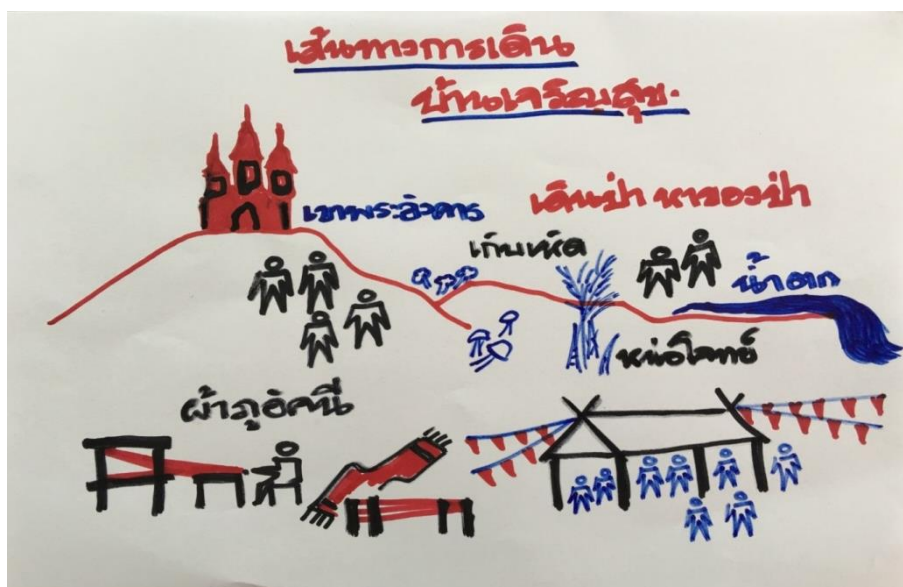 เส้นทางการเดิน
บ้านเจริญสุข.
เขาพระอังคาร
เดินป่า หาของป่า
เก็บเห็ด
น้ำตก
หน่อโจทย์
ผ้าภูอัคนี